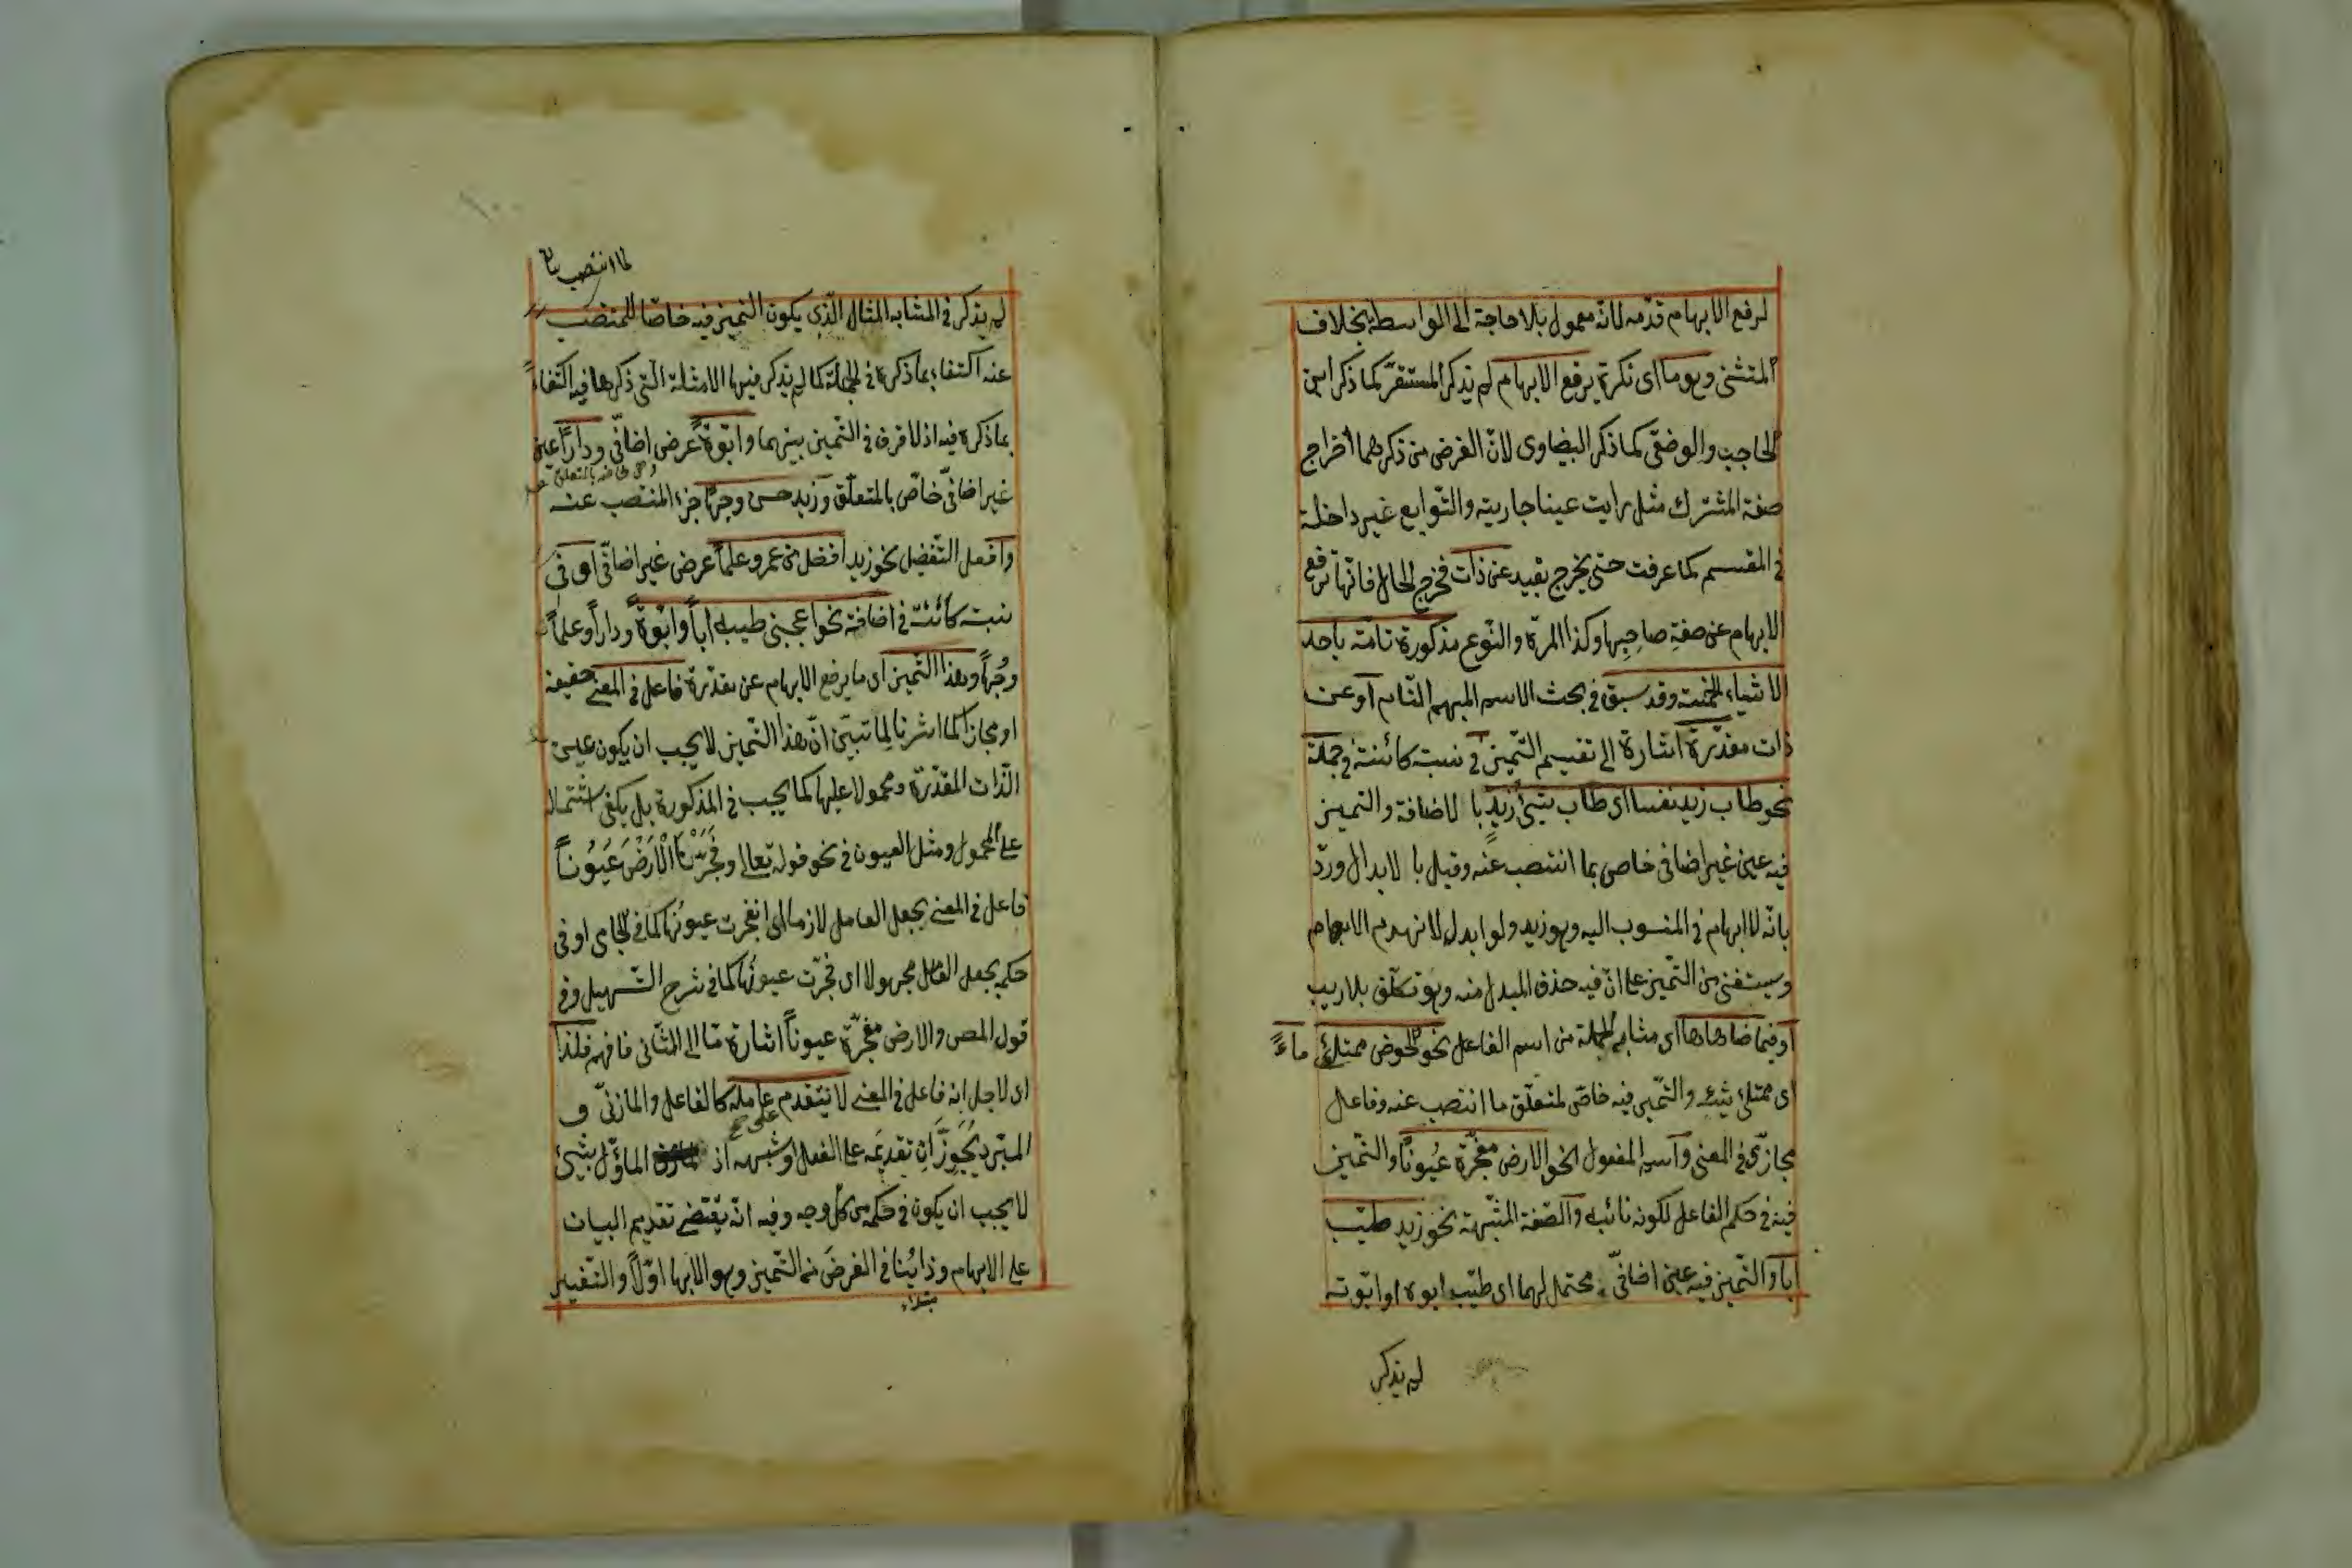 لرفع الابهام قدّمه لانّه معمول بلا حاجة الى الواسطة بخلاف
المتثنى وهو ما اى نكرة يرفع الابهام لم يذكر المستقرّ كما ذكر ابن
الحاجب والوضعى كما ذكر البيضاوى لانّ الغرض من ذكرهما اخراج
صفة المشترك مثل رايت عينا جارية والتّوابع غير داخلة
فى المقسم كما عرفت حتى يخرج بقيد عن ذات فخرج الحال فانّها ترفع
الابهام عن صفة صاحبها وكذا المرّة والنّوع مذكورة تامّة باحد
الاشياء الخمسة وقد سبق فى بحث الاسم المبهم التّام او عن
ذات مقدّرة اشارة الى تقسيم التّميز فى نسبة كائنة فى جملة
نحو طاب زيد نفسا اى طاب شيئ زيد با لاضافة والتميز
فيه عين غير اضافى خاص بما انتصب عنه وقيل با لابدال وردّ
بانّه لا ابهام فى المنسوب اليه وهو زيد ولو ابدل لانهدم الابهام
وسيتغنى من التّميز على انّ فيه حذف المبدل منه وهو تكلّف بلا ريب
او فيما ضاهاها اى مشابه الجملة من اسم الفاعل نحو الحوض ممتلئ ماءً
اى ممتلئ شيئه والتّميز فيه خاصّ لمتعلّق ما انتصب عنه وفاعل
مجازىّ فى المعنى واسم المفعول نحو الارض مفجّرة عيونًا والتّميز
فيه فى حكم الفاعل لكونه نائبه والصّفة المشبّهة نحو زيد طيّب
ابا والتّميز فيه عين اضافىّ محتمل لهما اى طيّب ابوه او ابوّته
لم يذكر
لما انتصب
لم يذكر فى المشابه المثال الّذى يكون التّميز فيه خاصّا للمنتصب
عنه اكتفاء بما ذكره فى الجملة كما لم يذكر فيها الامثلة الّتى ذكرها فيه اكتفاءً
بما ذكره فيه اذ لا فرق فى التّميز بينهما وابوّةً عرض اضافىّ ودارًا عين
غير اضافىّ خاصّ بالمتعلّق وزيد حسن وجهًا جزء المنتصب عنه
وافعل التّفضيل نحو زيد افضل من عمرو علمًا عرض غير اضافىّ او فى
نسبة كائنة فى اضافة نحو اعجبنى طيبه ابًا وابوّةً ودارًا وعلمًا
وجهًا وهذا التّميز اى ما يرفع الابهام عن مقدّرة فاعل فى المعنى حقيقة
او مجازا كما اشرنا لِما تبيّن انّ هذا التّميز لا يجب ان يكون عين
الذّات المقدّرة ومحمولا عليها كما يجب فى المذكورة بل يكفى اشتماله
على المحمول ومثل العيون فى نحو قوله تعالى وَفَجَّرْنَا الْاَرْضَ عُيُونًا
فاعل فى المعنى بجعل العامل لازما اى انفجرت عيونها كما فى الجامى او فى
حكمه بجعل الفاعل مجهولا اى فجّرت عيونها كما فى شرح التّسهيل وفى
قول المصـ والارض مفجّرة عيونًا اشارة مّا الى الثّانى فافهم فلذا
اى لاجل انه فاعل فى المعنى لا يتقدم عامله كالفاعل والمازنىّ و
على
المبرّد يُجَوِّزَانِ تقديمه على الفعل او شبهه اذ المأوّل بشيئ
لا يجب ان يكون فى حكمه من كلّ وجه وفيه انّه يقتضى تقديم البيان
على الابهام وذا يُنافى الغرضَ من التّميز وهو الابها اوّلًا والتّفسير